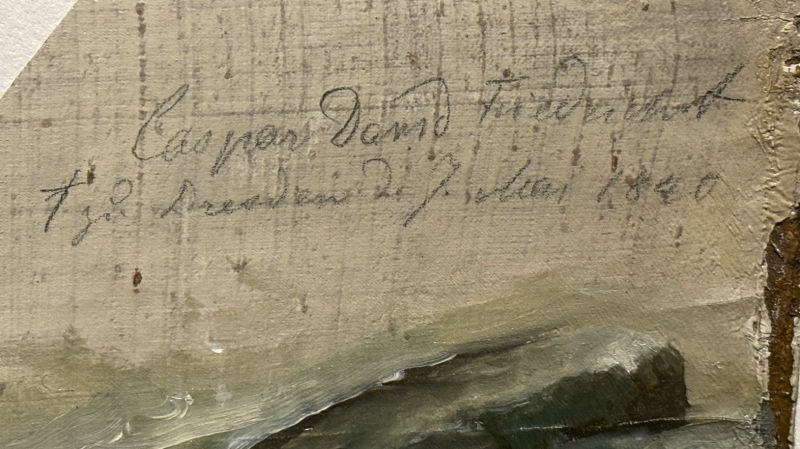 Caspar David Friedrich
† zu Dresden d. 7. Mai 1840